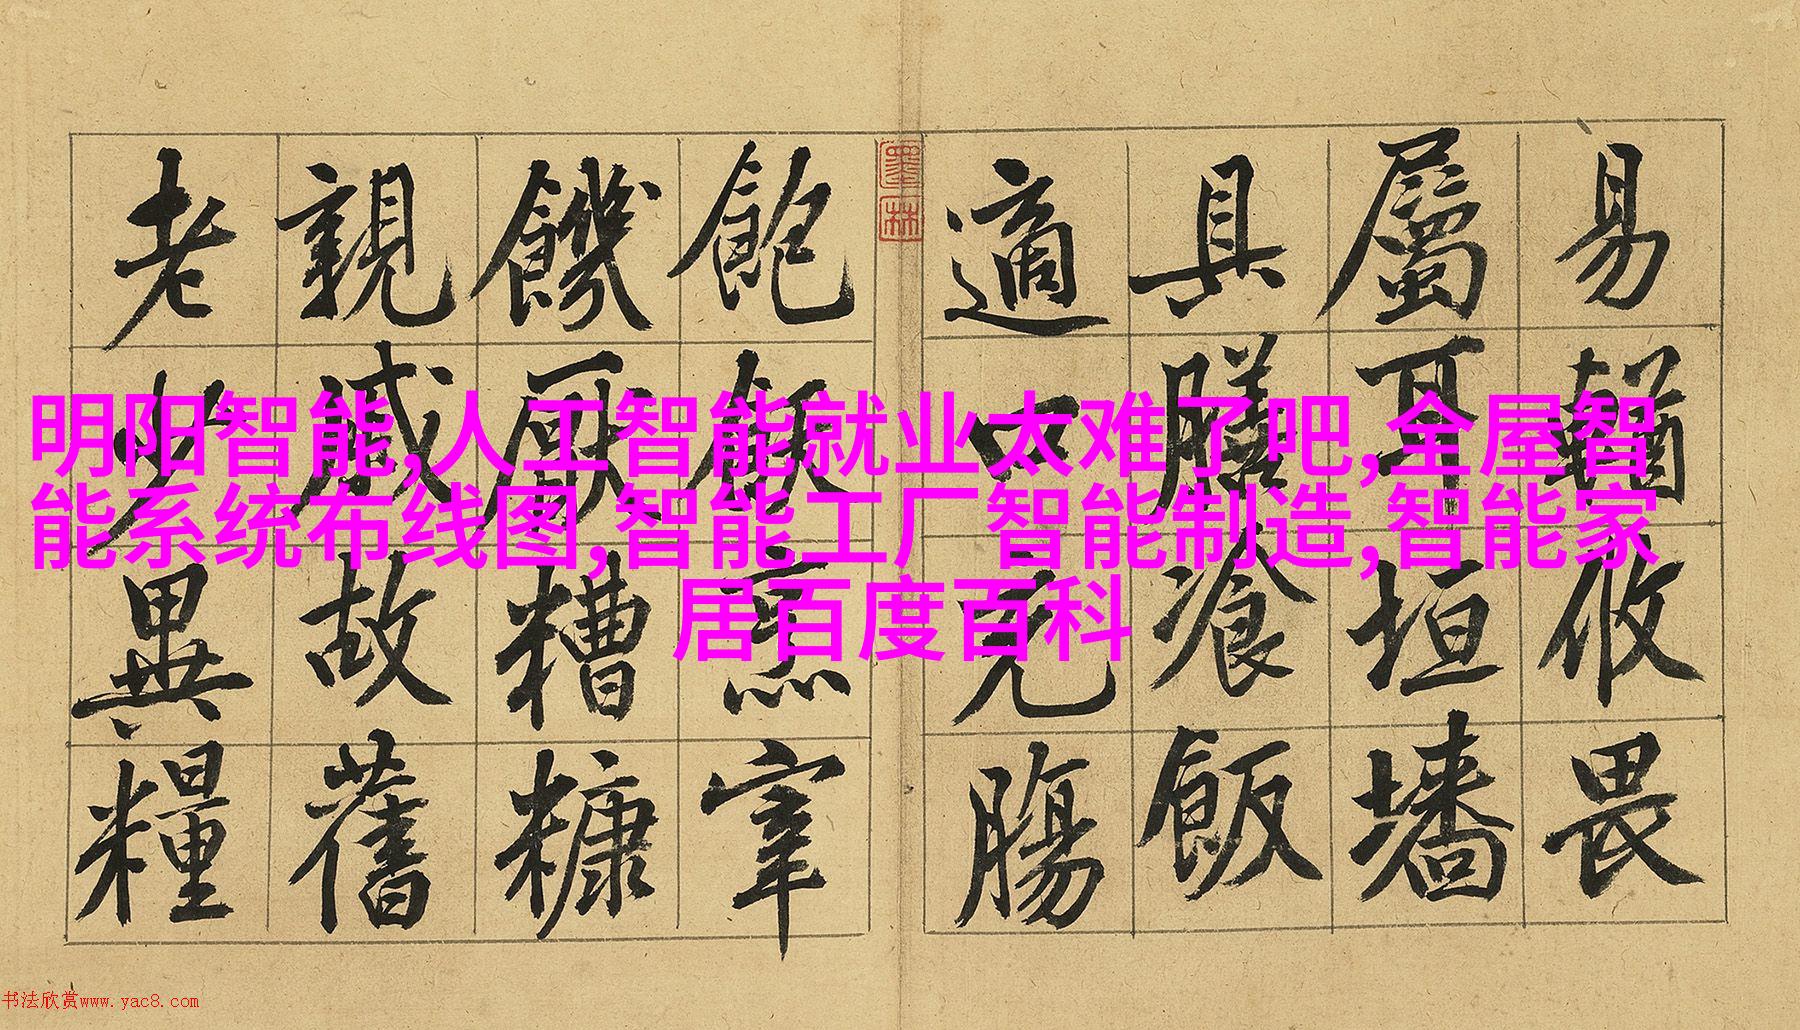 易輶攸畏
屬耳垣墻
具膳飡飯
適口充腸
墨林
飽飫烹宰
饑厭糟糠
親戚故舊
老少異糧
明阳智能,人工智能就业太难了吧,全屋智
能系统布线图,智能工厂智能制造,智能家
居百度百科
书法欣赏www.yac8.com